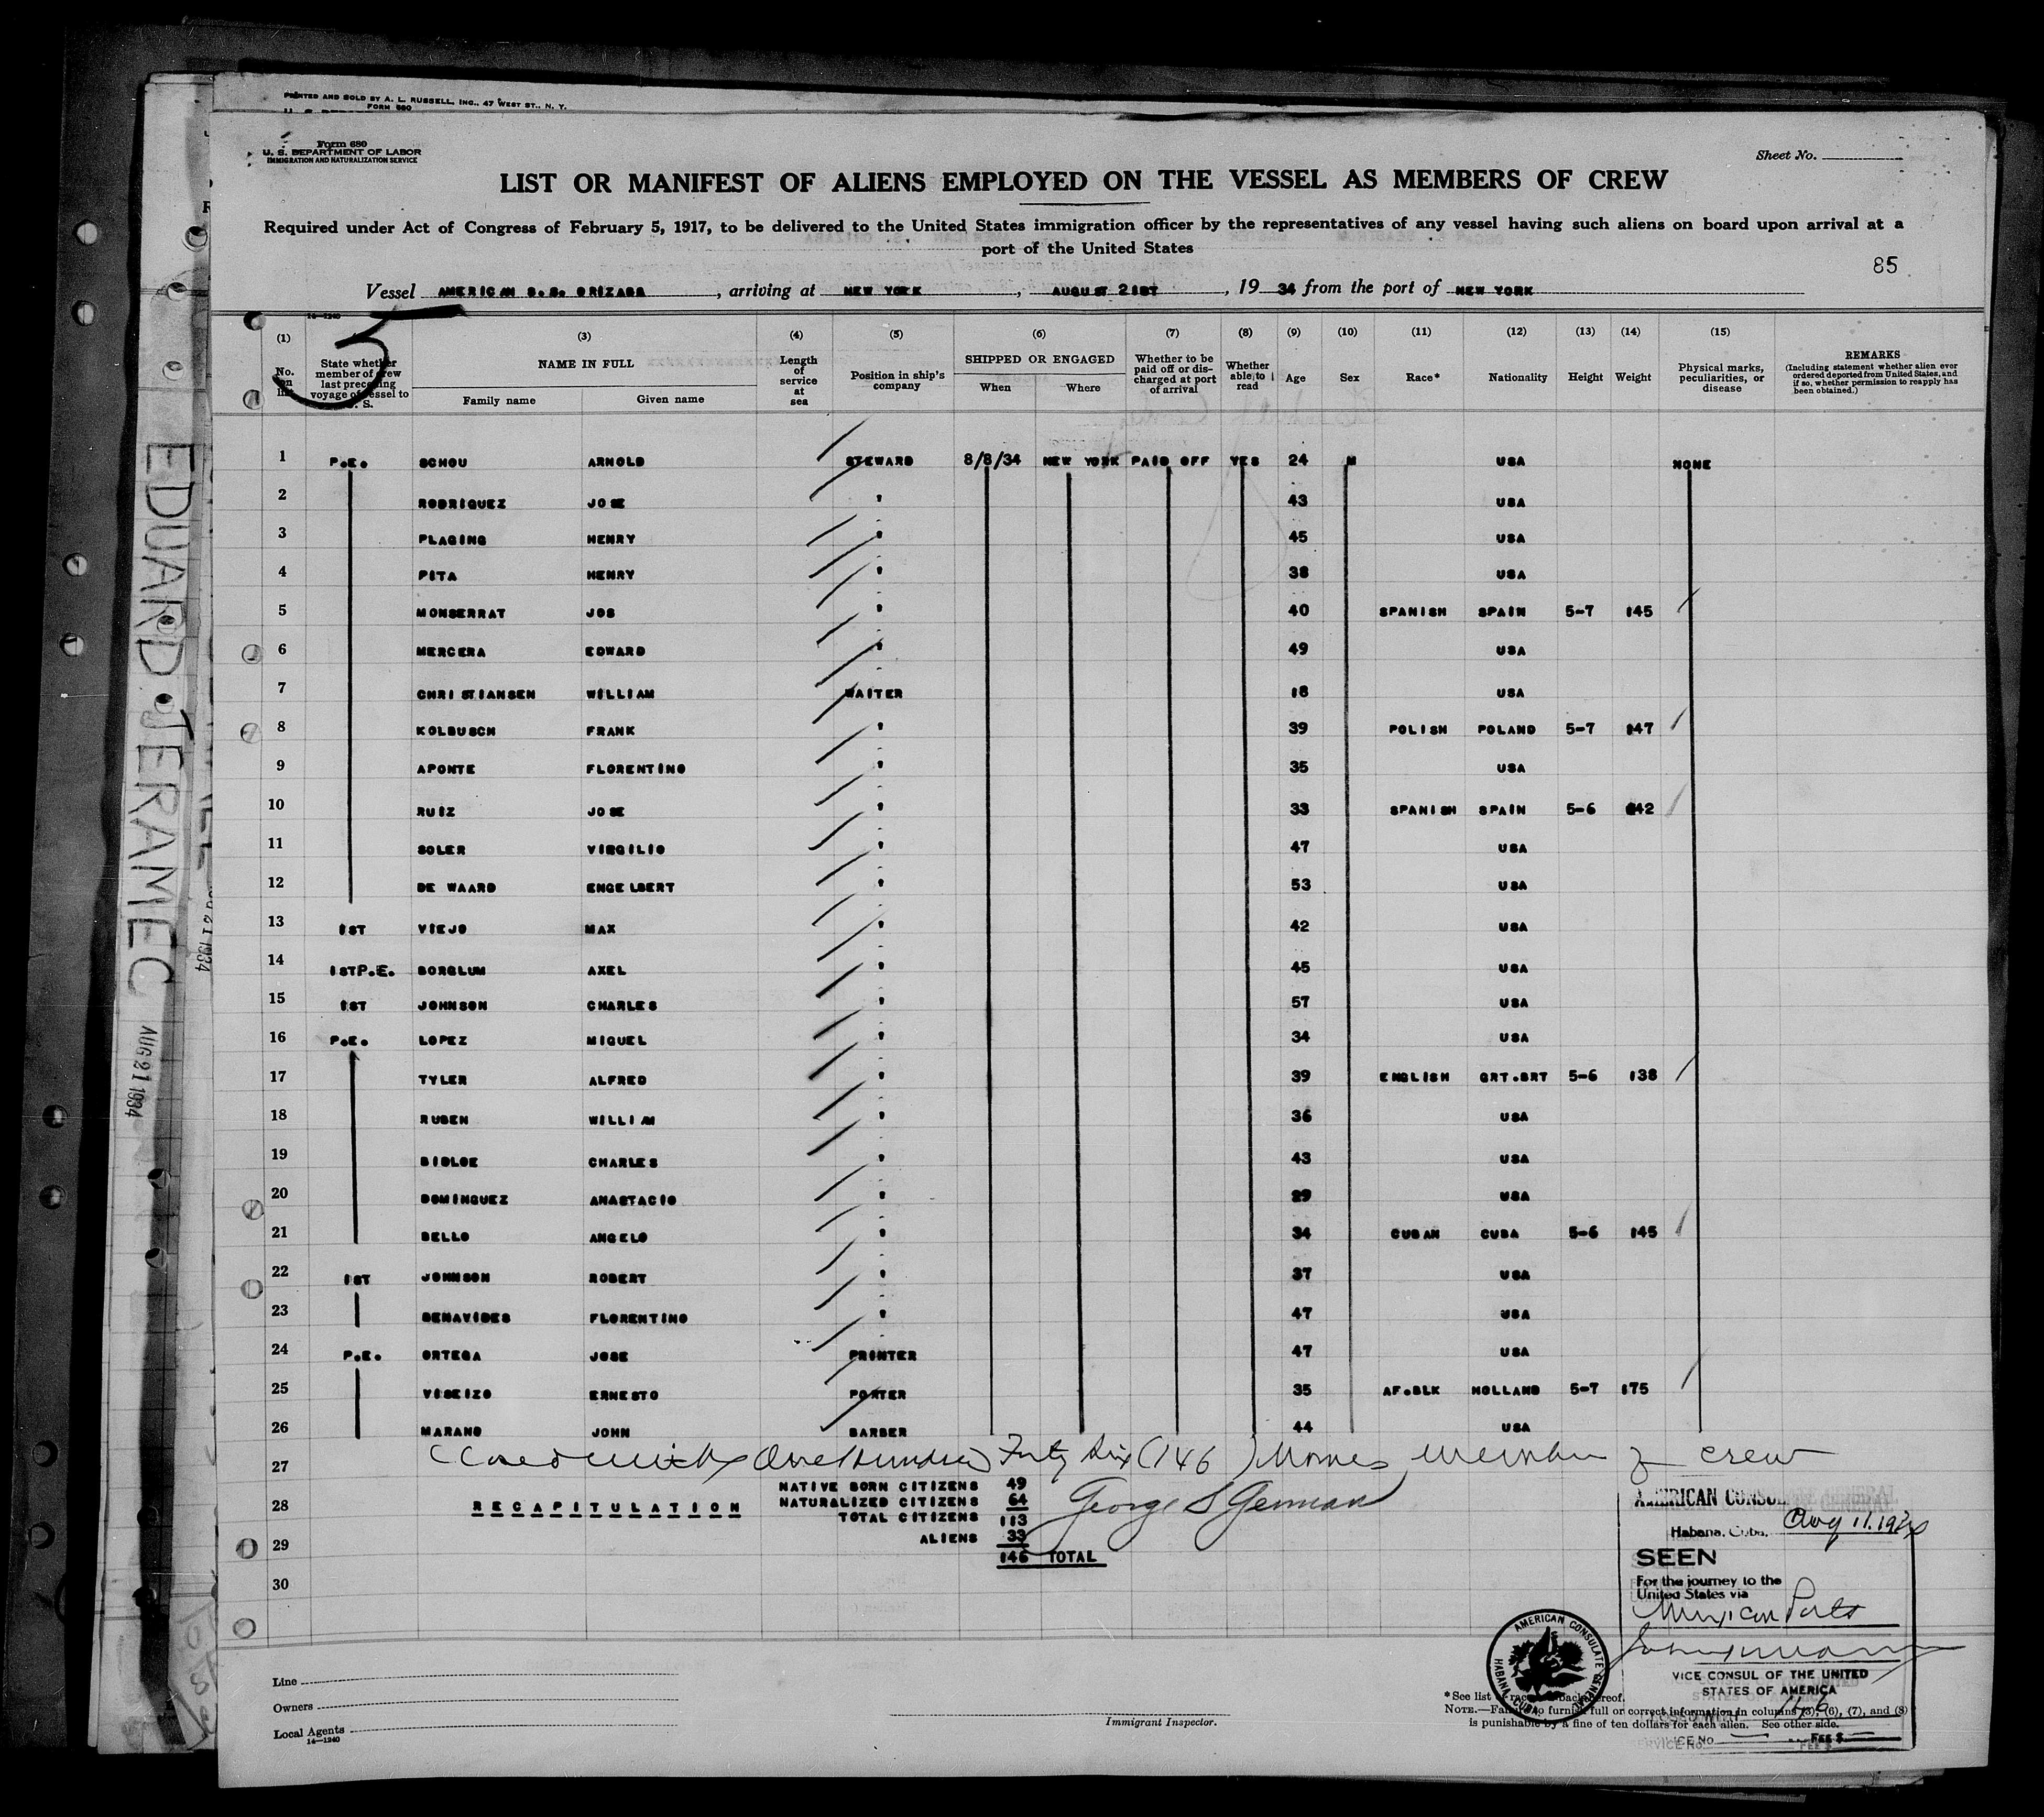 PRINTED AND SOLD BY A. L. RUSSELL, INC., 47 WEST ST., N. Y.
FORM 680
Form 680
U. S. DEPARTMENT OF LABOR
IMMIGRATION AND NATURALIZATION SERVICE
Sheet No.
LIST OR MANIFEST OF ALIENS EMPLOYED ON THE VESSEL AS MEMBERS OF CREW
Required under Act of Congress of February 5, 1917, to be delivered to the United States immigration officer by the representatives of any vessel having such aliens on board upon arrival at a
port of the United States
85
Vessel AMERICAN S.S. ORIZABA, arriving at NEW YORK, AUGUST 21ST, 19 34 from the port of NEW YORK
14-1240
3
(1) (3) (4) (5) (6) (7) (8) (9) (10) (11) (12) (13) (14) (15)
No. on list
State whether member of crew last preceding voyage of vessel to U. S.
NAME IN FULL
Family name Given name
Length of service at sea
Position in ship's company
SHIPPED OR ENGAGED
When Where
Whether to be paid off or discharged at port of arrival
Whether able to read
Age
Sex
Race*
Nationality
Height
Weight
Physical marks, peculiarities, or disease
REMARKS
(Including statement whether alien ever ordered deported from United States, and if so, whether permission to reapply has been obtained.)
1 P.E. SCHOU ARNOLD STEWARD 8/8/34 NEW YORK PAID OFF YES 24 M USA NONE
2 RODRIQUEZ JOSE " 43 USA
3 PLAGING HENRY " 45 USA
4 PITA HENRY " 38 USA
5 MONSERRAT JOS " 40 SPANISH SPAIN 5-7 145
6 MERCERA EDWARD " 49 USA
7 CHRISTIANSEN WILLIAM WAITER 18 USA
8 KOLBUSCH FRANK " 39 POLISH POLAND 5-7 147
9 APONTE FLORENTINO " 35 USA
10 RUIZ JOSE " 33 SPANISH SPAIN 5-6 142
11 SOLER VIRGILIO " 47 USA
12 DE WAARD ENGELBERT " 53 USA
13 1ST VIEJO MAX " 42 USA
14 1STP.E. BORGLUM AXEL " 45 USA
15 1ST JOHNSON CHARLES " 57 USA
16 P.E. LOPEZ MIGUEL " 34 USA
17 TYLER ALFRED " 39 ENGLISH GRT.BRT 5-6 138
18 RUBEN WILLIAM " 36 USA
19 BIDLOE CHARLES " 43 USA
20 DOMINGUEZ ANASTACIO " 29 USA
21 BELLO ANGELO " 34 CUBAN CUBA 5-6 145
22 1ST JOHNSON ROBERT " 37 USA
23 BENAVIDES FLORENTINO " 47 USA
24 P.E. ORTEGA JOSE PRINTER 47 USA
25 VISEIZO ERNESTO PORTER 35 AF.BLK HOLLAND 5-7 175
26 MARANO JOHN BARBER 44 USA
27 Closed with One Hundred Forty Six (146) Names member of crew
NATIVE BORN CITIZENS 49
28 RECAPITULATION NATURALIZED CITIZENS 64
TOTAL CITIZENS 113
29 ALIENS 33
146 TOTAL
30
George S German
AMERICAN CONSUL
Habana, Cuba, Aug 11. 1934
SEEN
For the journey to the
United States via
Mexican Ports
VICE CONSUL OF THE UNITED
STATES OF AMERICA
AMERICAN CONSULATE GENERAL
HABANA CUBA
Line
Owners
Local Agents
14-1240
Immigrant Inspector.
*See list of races on back hereof.
NOTE.—Failure to furnish full or correct information in columns (3), (6), (7), and (8)
is punishable by a fine of ten dollars for each alien. See other side.
SERVICE No. FEE $
EDUARD JERAMEC AUG 21 1934